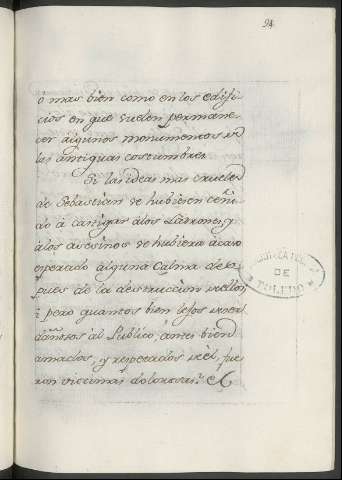 94
ó mas bien como en los edifi-
cios en que suelen permane-
cer algunos monumentos de
las antiguas costumbres
Si las ideas mas crueles
de Sebastian se hubiesen ceñi-
do à castigar álos Ladrones, y
álos asesinos se hubiera acaso
esperado alguna Calma des-
pues de la destruccion de ellos
; pero quantos bien lejos de ser
dañosos àl Publico, ántes bien
amados, y respetados de èl, fue-
ron victimas dolorosas?
DE
TOLEDO